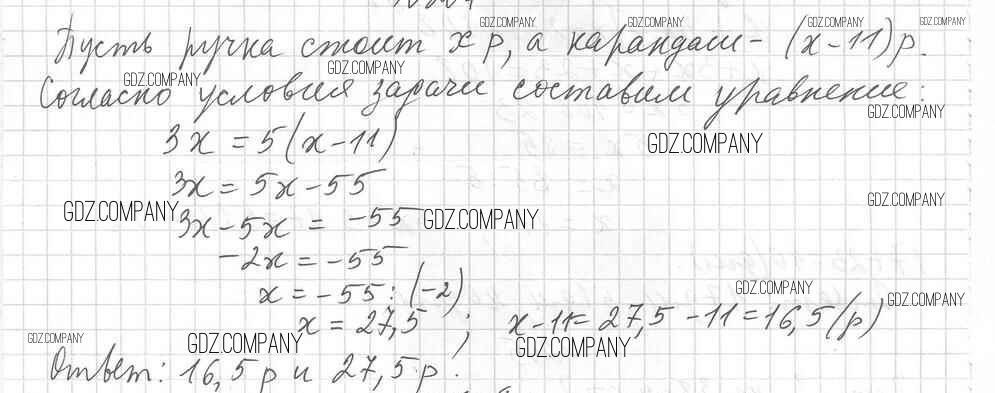 GDZ.COMPANY GDZ.COMPANY GDZ.COMPANY GDZ.COMPANY
Пусть ручка стоит x р, а карандаш - (x-11) р.
GDZ.COMPANY GDZ.COMPANY
Согласно условия задачи составим уравнение:
GDZ.COMPANY
3x = 5(x-11)
GDZ.COMPANY
3x = 5x - 55
GDZ.COMPANY
GDZ.COMPANY GDZ.COMPANY
3x - 5x = -55
-2x = -55
x = -55 : (-2)
GDZ.COMPANY GDZ.COMPANY
x = 27,5 ; x-11 = 27,5 - 11 = 16,5 (р)
GDZ.COMPANY GDZ.COMPANY GDZ.COMPANY
Ответ: 16,5 р и 27,5 р.